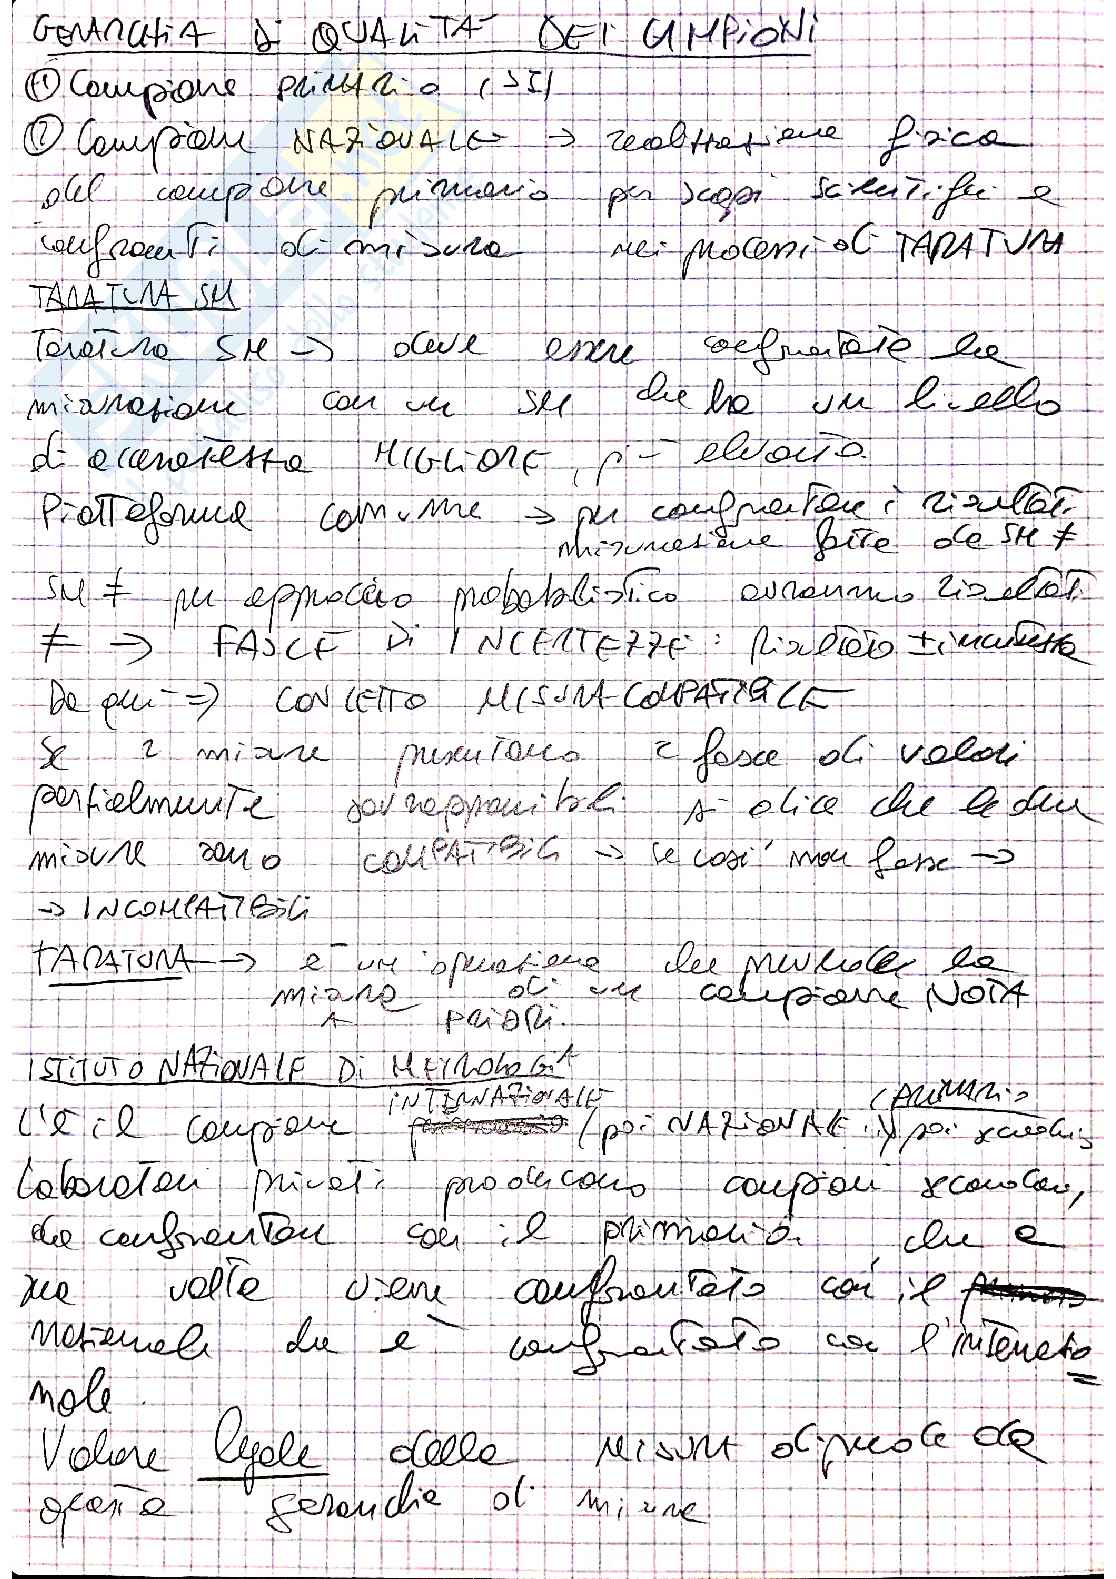 GERARCHIA DI QUALITÀ DEI CAMPIONI
① Campione PRIMARIO (SI)
② Campione NAZIONALE → realizzazione fisica
del campione primario per scopi scientifici e
confronti di misura nei processi di TARATURA
TARATURA SM
Taratura SM → deve essere confrontata la
misurazione con un SM che ha un livello
di accuratezza MIGLIORE, più elevato.
Piattaforma comune → per confrontare i risultati
misurazione fatte da SM ≠
SM ≠ per approccio probabilistico avranno risultati
≠ → FASCE DI INCERTEZZE: Risultato ± incertezza
Da qui ⇒ CONCETTO MISURA COMPATIBILE
Se 2 misure presentano 2 fasce di valori
parzialmente sovrapponibili si dice che le due
misure sono COMPATIBILI → se così non fosse →
→ INCOMPATIBILI
TARATURA → è un'operazione che prevede la
misura di un campione NOTA
A PRIORI.
ISTITUTO NAZIONALE DI METROLOGIA
INTERNAZIONALE (PRIMARIO
C'è il campione (poi NAZIONALE) poi
Laboratori privati producono campioni secondari,
da confrontare con il primario, che a
sua volta viene confrontato con il
nazionale che è confrontato con l'internazio
nale.
Valore legale della MISURA dipende da
questa gerarchia di misure